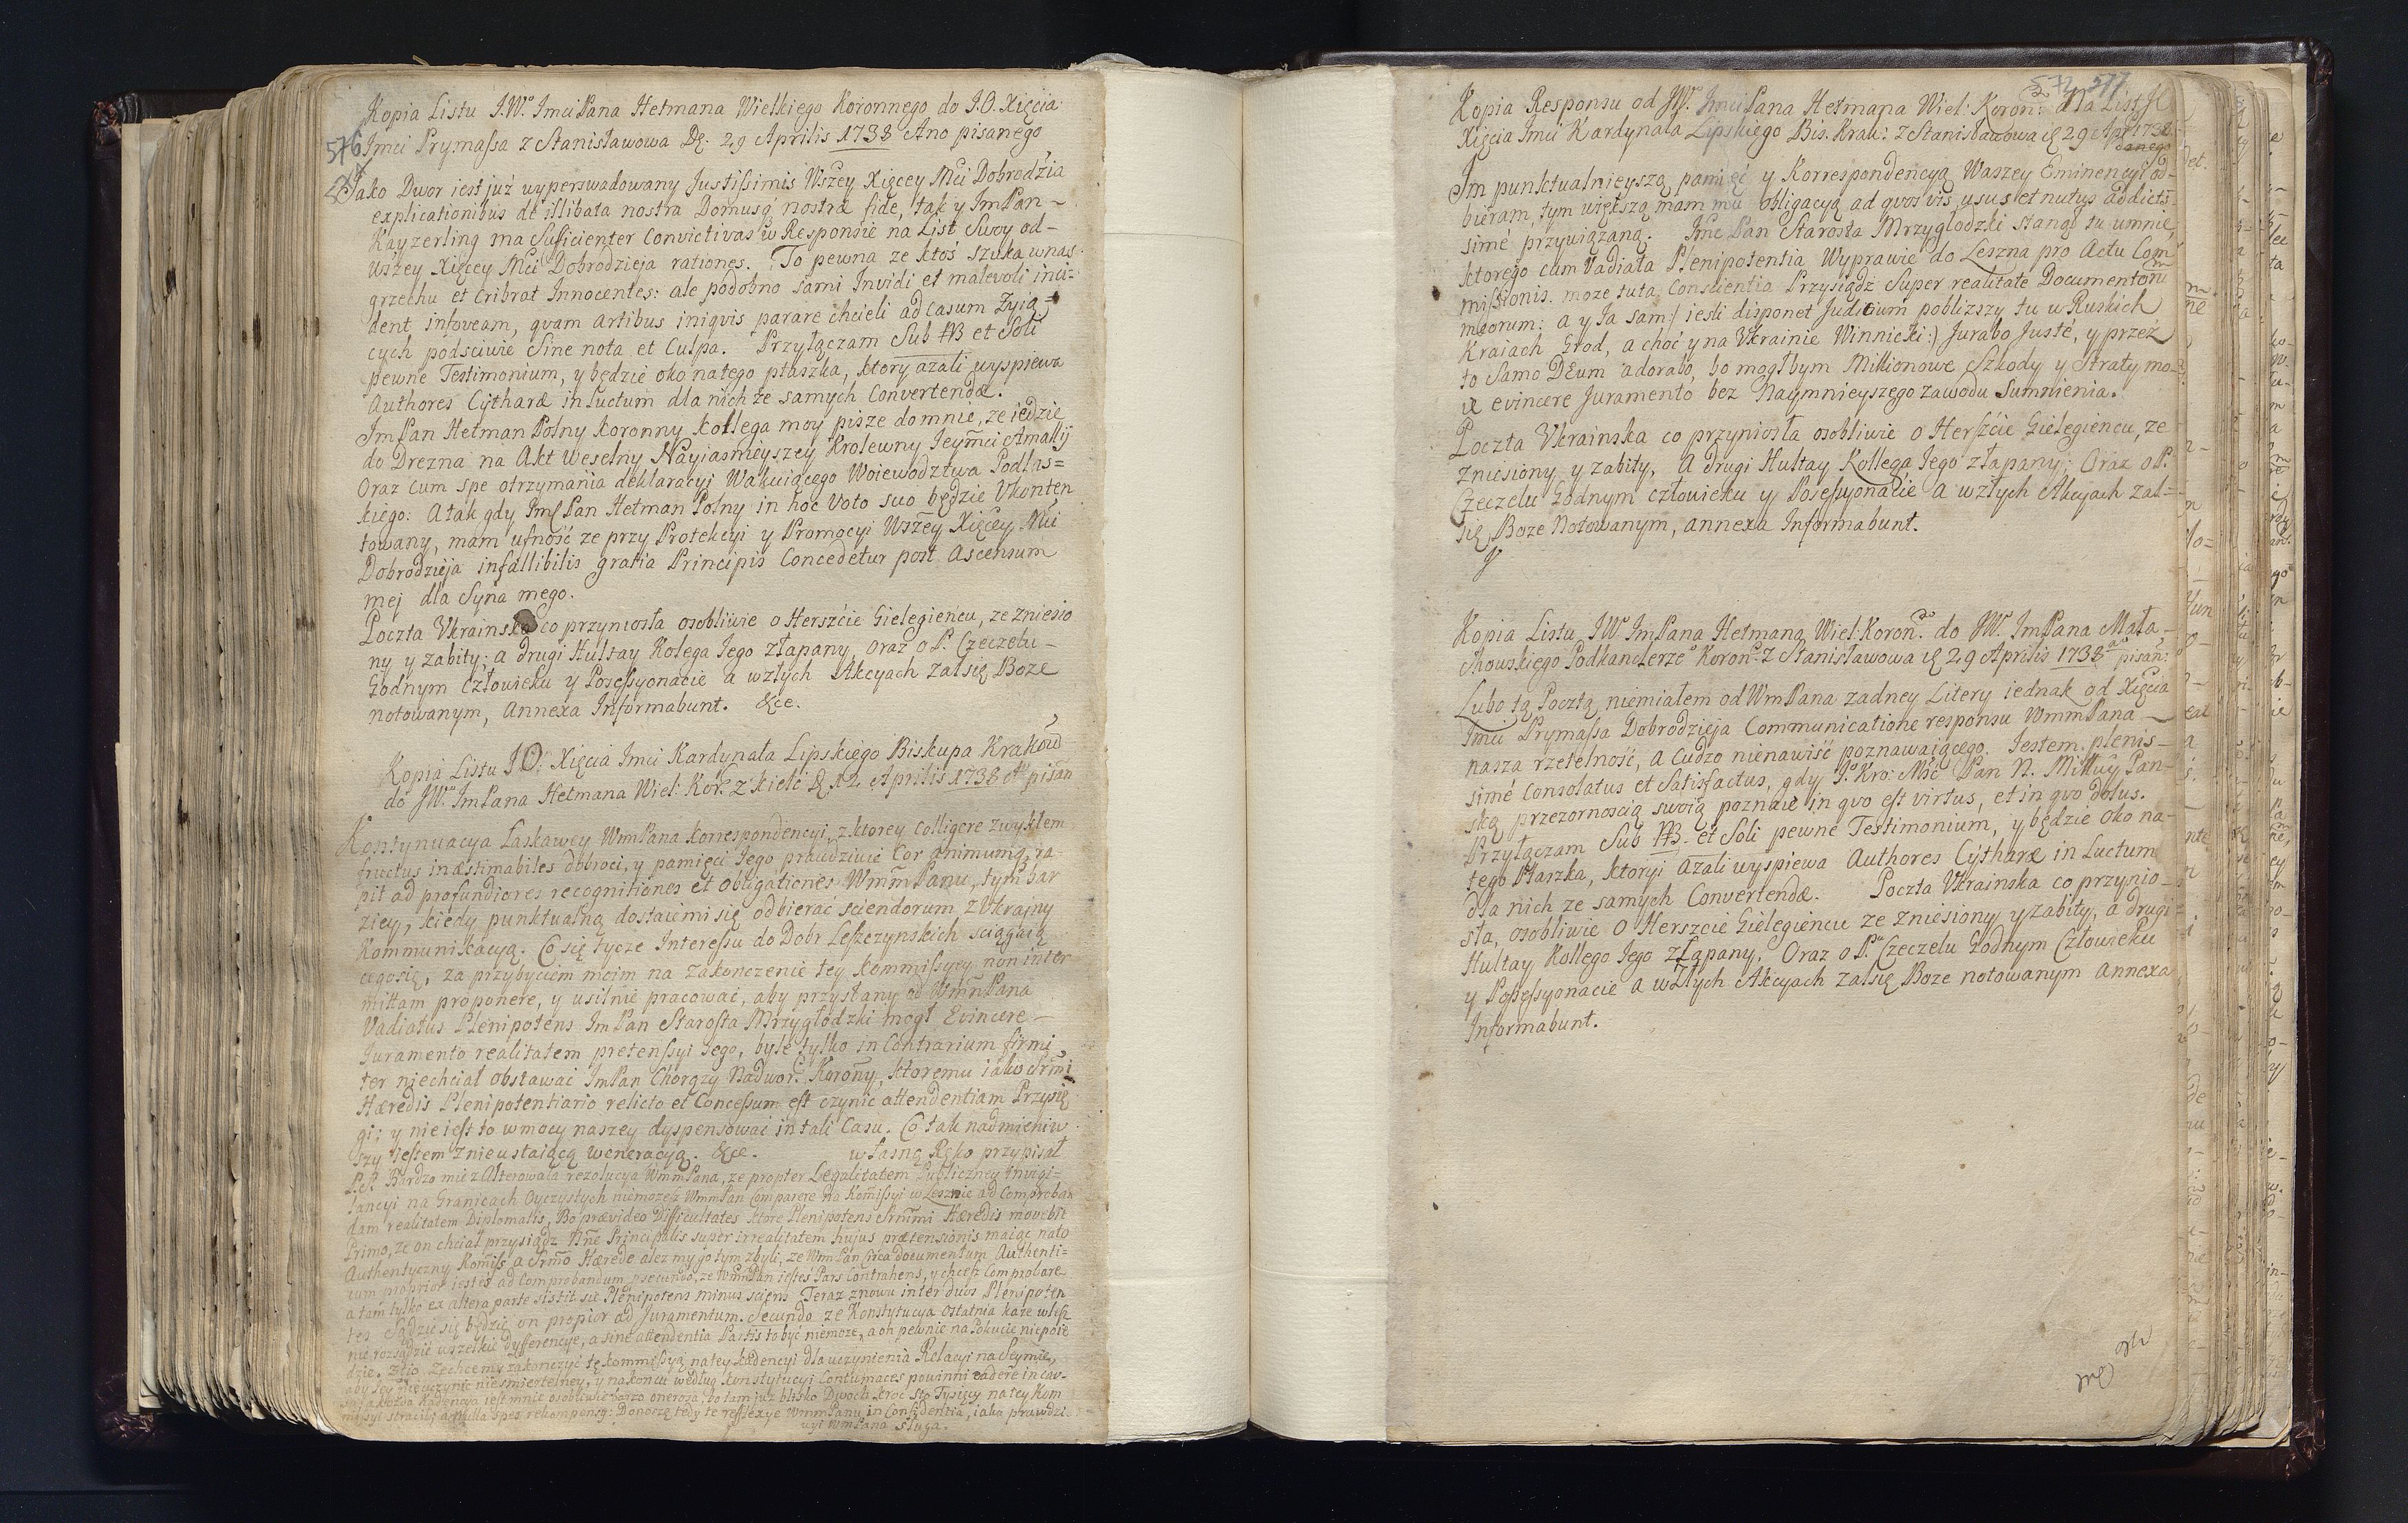 576
Kopia Listu J.W.º Imci Pana Hetmana Wielkiego Koronnego do J.O. Xięcia
Imci Prymaſsa z Stanisławowa D. 29 Aprilis 1738 Ano pisanego
Jako Dwor iest już wyperswadowany Justiſsimis Wszey Xięcey Mci Dobrodzia
explicationibus de illibata nostra Domusq́ nostræ fide, tak y ImPan
Kayzerling ma Sufficienter Convictivas w Responsie na List Swoy od-
Wszey Xięcey Mci Dobrodzieja rationes. To pewna ze ktoś szuka wnas
grzechu et Cribrat Innocentes: ale podobno sami Invidi et malevoli inci-
dent in foveam, qvam artibus iniqvis parare chcieli ad casum Żyią-
cych podsciwie Sine nota et Culpa. Przyłączam Sub AB et Soli
pewne Testimonium, y będzie oko natego ptaszka, ktory azali wyspiewa
Authores Cytharæ in luctum dla nich ze samych Convertendæ.
ImPan Hetman Polny Koronny Kollega moy pisze domnie, ze iedzie
do Drezna na Akt Weselny Nayiasnieyszey Krolewny Jeymci Amalij
Oraz cum spe otrzymania deklaracyi Wakuiącego Woiewodztwa Podlas=
kiego: A tak gdy Im Pan Hetman Polny in hoc Voto suo będzie Ukonten
towany, mam ufność ze przy Protekcyi y Promocyi Wszey Xięcey Mci
Dobrodzieja infallibilis gratia Principis Concedetur post ascensum
mej dla Syna mego.
Poczta Ukrainska co przyniosła osobliwie o Herszćie Gielegieńcu, ze zniesio
ny y zabity; a drugi Hultay Kolega Jego złapany, oraz o P. Czeczelu
Godnym człowieku y Posessyonacie a wzłych Akcyach zalsię Boze
notowanym, Annexa Informabunt. &ce.
Kopia Listu JO. Xięcia Imci Kardynała Lipskiego Biskupa Krakow
do JWº ImPana Hetmana Wiel: Kor: z Kielc D. 12 Aprilis 1738 Aº pisan
Kontynuacya Łaskawey WmPana korrespondencyi, z ktorey Colligere zwykłem
fructus inæstimabiles dobroci, y pamięci Jego prawdziwie Cor animumq́ ra
pit ad profundiores recognitiones et obligationes WmmPanu, tym bar
ziey, kiedy punktualną dostaiemi się odbierać sciendorum z Ukrainy
Kommunikacyą. Co się tycze Interessu do Dobr Leszczynskich sciągaią
cegosię, za przybyciem moim na zakonczenie tey Kommiſsyey non inter
mittam proponere, y usilnie pracować, aby przysłany od WmmPana
Vadiatus Plenipotens ImPan Starosta Mrzygłodzki mogł Evincere
Juramento realitatem pretenſsyi Jego, byle tylko in Contrarium firmi
ter niechciał obstawać ImPan Chorązy Nadwor: Koronny, ktoremu iako Srmi
Hæredis Plenipotentiario relicto et Concessum est czynic attendentiam Przysię
gi; y nie iest to wmocy naszey dyspensować in tali Casu. Co tak nadmieniw
szy iestem z nieustaiącą weneracyą. &ce. własną Ręką przypisał
P.S. Bardzo mię zAlterowała rezolucya WmmPana, ze propter Legalitatem Publiczney Invigi=
lancyi na Granicach Oyczystych niemozesz WmmPan Comparere na Komissyi w Lesznie ad Comproban
dam realitatem Diplomatis, Bo prævideo Difficultates ktore Plenipotens Srmmi Hæredis movebit
Primo, ze on chciał przysiądz Nñe Principalis super irrealitatem hujus prætensionis maiąc nato
Authentyczny Komiſs a Srmo Hærede alez my go tym zbyli, ze WmPan circa documentum Authenti=
cum proprior iestes ad Comprobandum, secundo, ze WmmPan iestes Pars Contrahens, y chcesz Comprobare
a tam tylko ex altera parte sistit se Plenipotens minus sciens. Teraz znowu inter duos Plenipoten
tes sądzic się będzie on propior ad Juramentum. Secundo ze Konstytucya ostatnia kaze wlesz
nie rozsądzic wszelkie dyfferencye, a sine attendentia Partis tobyć niemoze, a on pewnie na Pokucie niepoie
dzie. 3tio Zechcemy zakonczyć tę kommiſsyą na tey kadencyi dla uczynienia Relacyi na Seymie,
aby iey nieuczynic niesmiertelney, y nakoncu według Konstytucyi Contumaces powinni cadere in cau-
sa. Takowa Kadencya iest mnie osobliwie barzo onerosa, bo tam już blisko Dwoch kroc sto Tysięcy na tey Kom
missyi straciłem a nulla spes rekompensy: Donoszę tedy te reflexye WmmPanu in Confidentia, iako prawdzi
wyi WmPana Sługa.
572 577
Kopia Responsu od JWº Imci Pana Hetmana Wiel: Koron: Na List
Xięcia Imci Kardynała Lipskiego Bis. Krak: z Stanisławowa D 29 Apr 1738
danego
Im punktualnieyszą pamięć y Korrespondencyą Waszey Eminencyi od-
bieram, tym większą mam mu obligacyą ad qvos vis usus et nutus addictis
simé przywiązaną. Imc Pan Starosta Mrzygłodzki stanął tu umnie,
ktorego cum Vadiata Plenipotentia Wyprawię do Leszna pro Actu Com
miſsionis. moze tuta Conscientia Przysiądz Super realitate Documentoru
meorum: a y Ja sam (: iesli disponet Judicium poblizszy tu w Ruskich
Kraiach Grod, a choć y na Ukrainie Winnicki:) Jurabo Justé, y przez
to samo DEum adorabo, bo mogłbym Millionowe Szkody y Straty mo-
ie evincere Juramentó bez Naymnieyszego zawodu Sumnienia.
Poczta Ukrainska co przyniosła osobliwie o Herszćie Gielegiencu, ze
zniesiony y zabity, A drugi Hultay Kollega Jego złapany; Oraz o P.
Czeczelu Godnym człowieku y Posessyonacie a wzłych Akcyach zal=
się Boze Notowanym, annexa Informabunt.
Kopia Listu JWº ImPana Hetmana Wiel: Koron:º do JWº ImPana Mała
chowskiego Podkanclerzeº Koron:º z Stanisławowa D 29 Aprilis 1738 aº pisan:
Lubo tą Pocztą niemiałem od WmPana zadney Litery iednak od Xięcia
Imci Prymaſsa Dobrodzieja Communicatione responsu WmmPana
nasza rzetelność, a Cudzo nienawiść poznawaiącego. Jestem plenis-
simé Consolatus et Satisfactus, gdy J. Kro: Mść Pan N. Miłłwy Pan-
ską przezornoscią swoią poznaie in qvo est virtus, et in qvo dolus.
Przyłączam Sub AB. et Soli pewne Testimonium, y będzie Oko na-
tego Ptaszka, ktoryi Azali wyspiewa Authores Cytharæ in Luctum
dla nich ze samych Convertendæ. Poczta Ukrainska co przynio-
sła, osobliwie o Herszcie Gielegiencu ze zniesiony y zabity, a drugi
Hultay Kollego Jego złapany. Oraz o P. Czeczelu Godnym Człowieku
y Posessyonacie a wZłych Akcyach zalsię Boze notowanym Annexa
Informabunt.